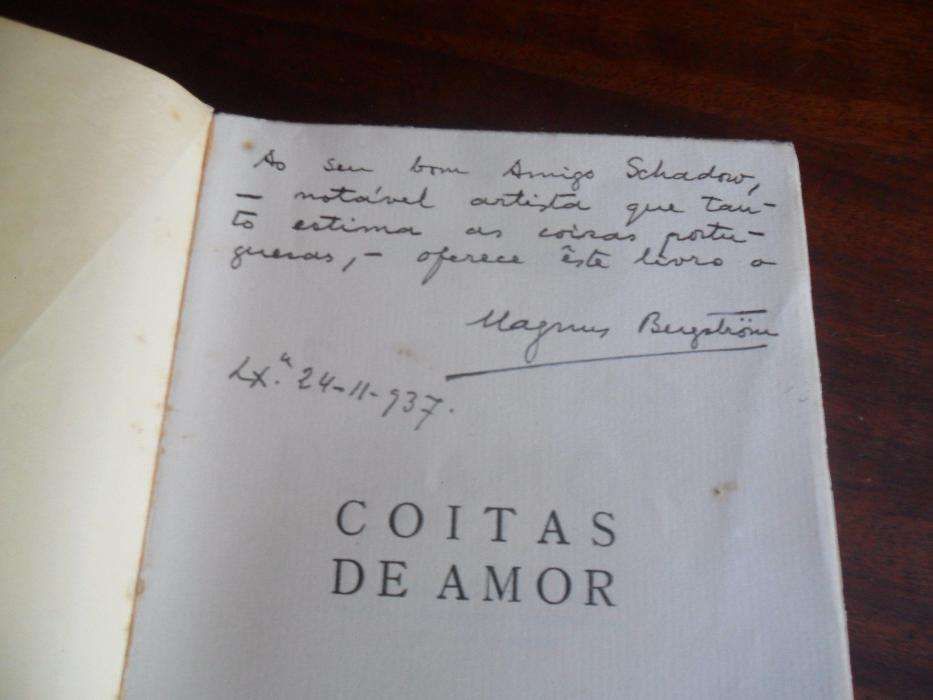 Ao seu bom Amigo Schadow,
— notável artista que tan-
to estima as coisas portu-
guesas, — oferece êste livro o
Magnus Bergström
Lx.ª 24-11-937.
COITAS
DE AMOR